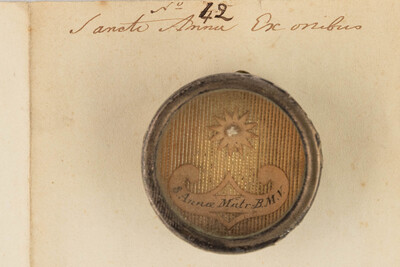 No 42
Sancte Annae Ex ossibus
S Annæ Matr B.M.V.